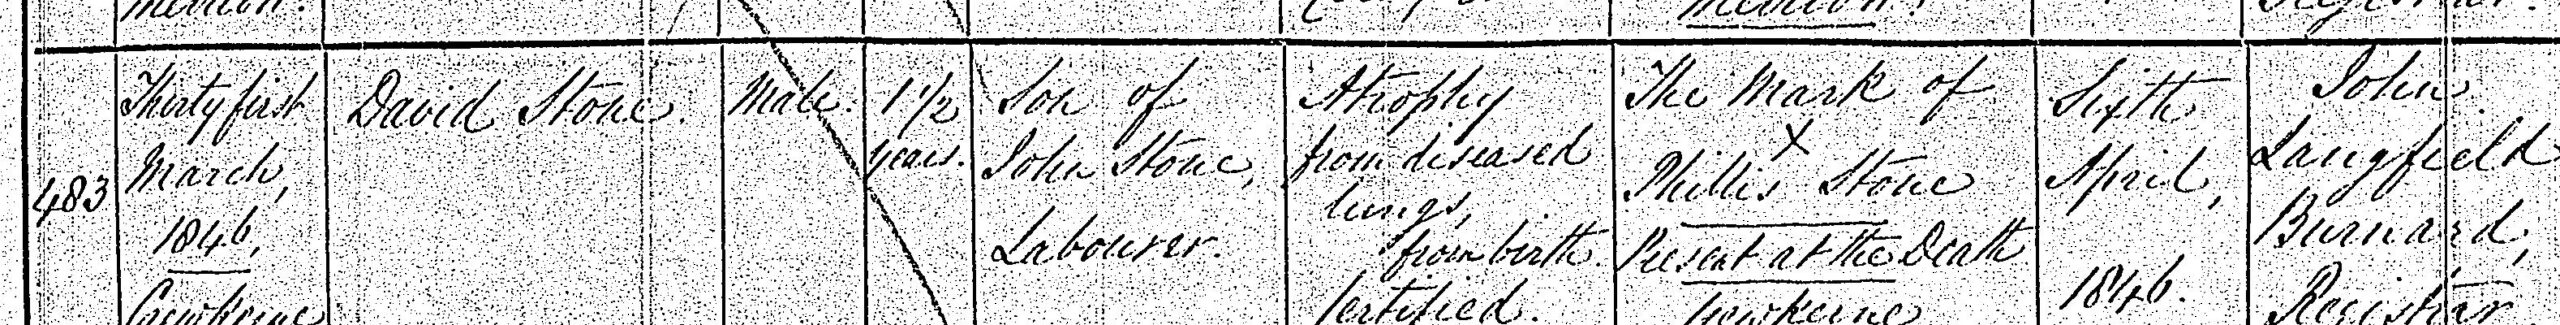 Merriott.
Merriott.
Registrar.
483
Thirty first
March,
1846,
Crewkerne
David Stone.
Male.
1 1/2
years.
Son of
John Stone,
Labourer.
Atrophy
from diseased
lungs,
from birth.
Certified.
The Mark of
X
Phillis Stone
Present at the Death
Crewkerne
Sixth
April,
1846.
John
Langfield
Burnard,
Registrar